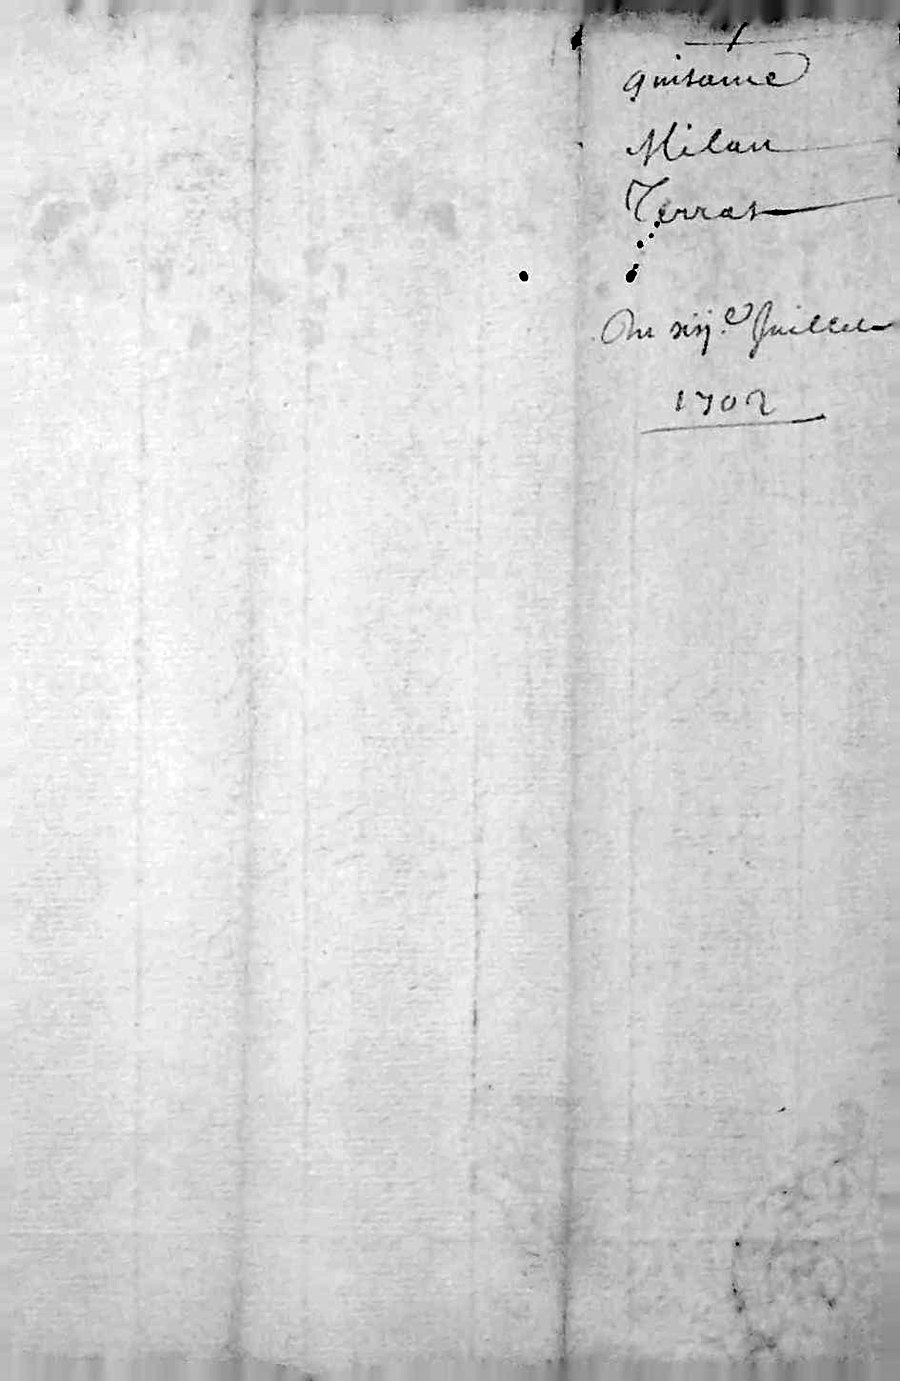 quitance
Milan
Terras
Du xiij.e Juillet
1702